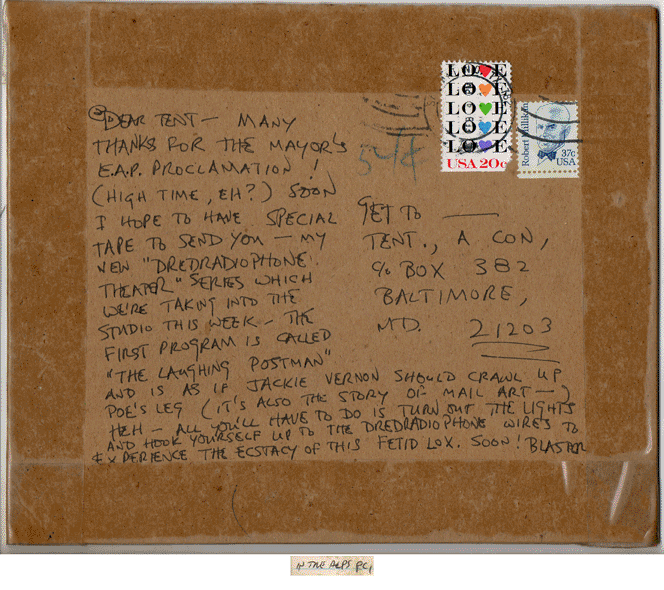 DEAR TENT — MANY
THANKS FOR THE MAYOR'S
E.A.P. PROCLAMATION!
(HIGH TIME, EH?) SOON
I HOPE TO HAVE SPECIAL
TAPE TO SEND YOU — MY
NEW "DREDRADIOPHONE
THEATER" SERIES WHICH
WE'RE TAKING INTO THE
STUDIO THIS WEEK — THE
FIRST PROGRAM IS CALLED
"THE LAUGHING POSTMAN"
AND IS AS IF JACKIE VERNON SHOULD CRAWL UP
POE'S LEG (IT'S ALSO THE STORY OF MAIL ART —)
HEH — ALL YOU'LL HAVE TO DO IS TURN OUT THE LIGHTS
AND HOOK YOURSELF UP TO THE DREDRADIOPHONE WIRES TO
EXPERIENCE THE ECSTACY OF THIS FETID LOX. SOON! BLASTER
54¢
LOVE
LOVE
LOVE
LOVE
LOVE
USA 20c
Robert Millikan
37c
USA
GET TO
TENT., A CON,
% BOX 382
BALTIMORE,
MD. 21203
IN THE ALPS PC,